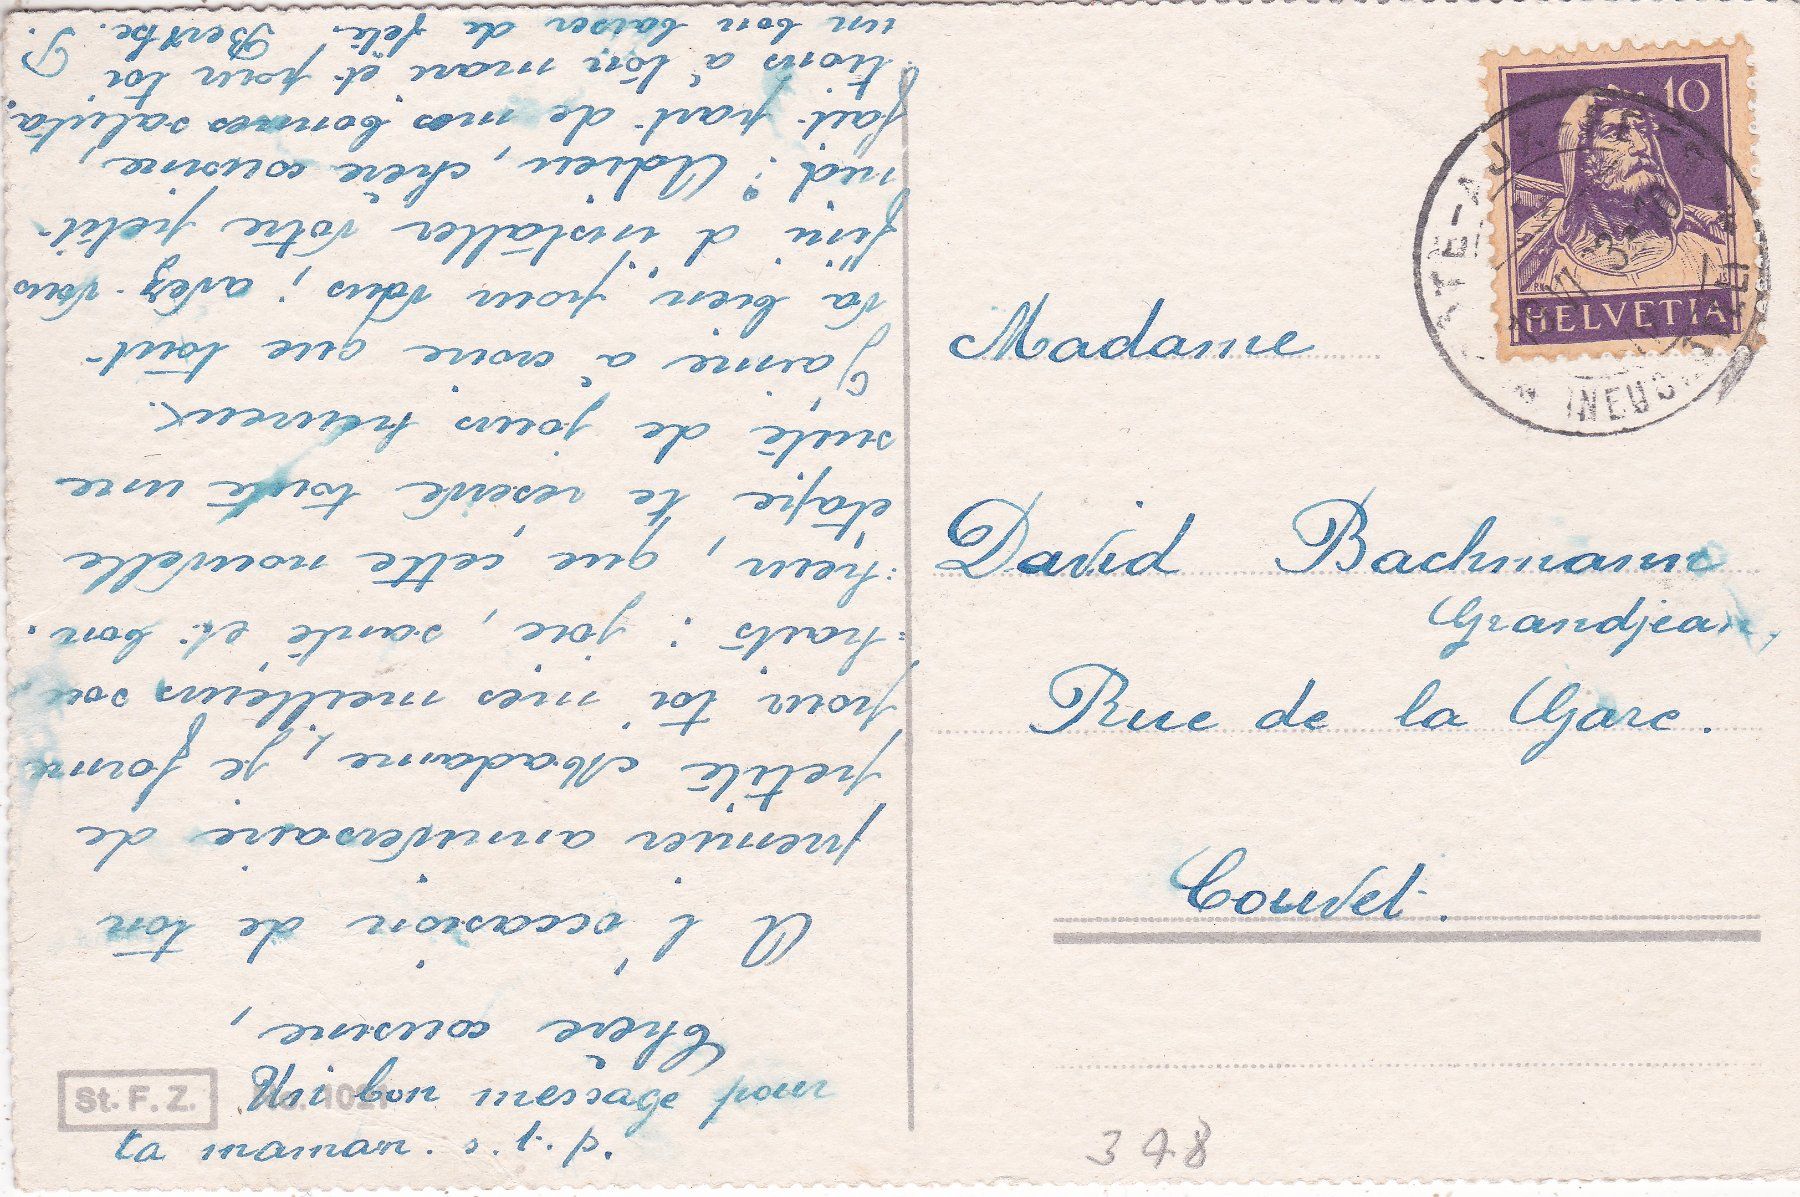 Chère cousine,
A l'occasion de ton
premier anniversaire de
petite Madame, je forme
pour toi mes meilleurs sou
=haits : joie, santé et bon.
=heur, que cette nouvelle
étape te réserve toute une
suite de jours heureux.
J'aime à croire que tout
va bien pour vous ; avez-vous
fini d'installer votre petit
nid ? Adieu, chère cousine,
fait part de mes bonnes saluta
tions à ton mari et pour toi
un bon baiser de fête. Berthe. P.
Un bon message pour
ta maman. s. t. p.
St. F. Z. No. 1021
HELVETIA
10
Madame
David Bachmann
Grandjean
Rue de la Gare.
Couvet.
348